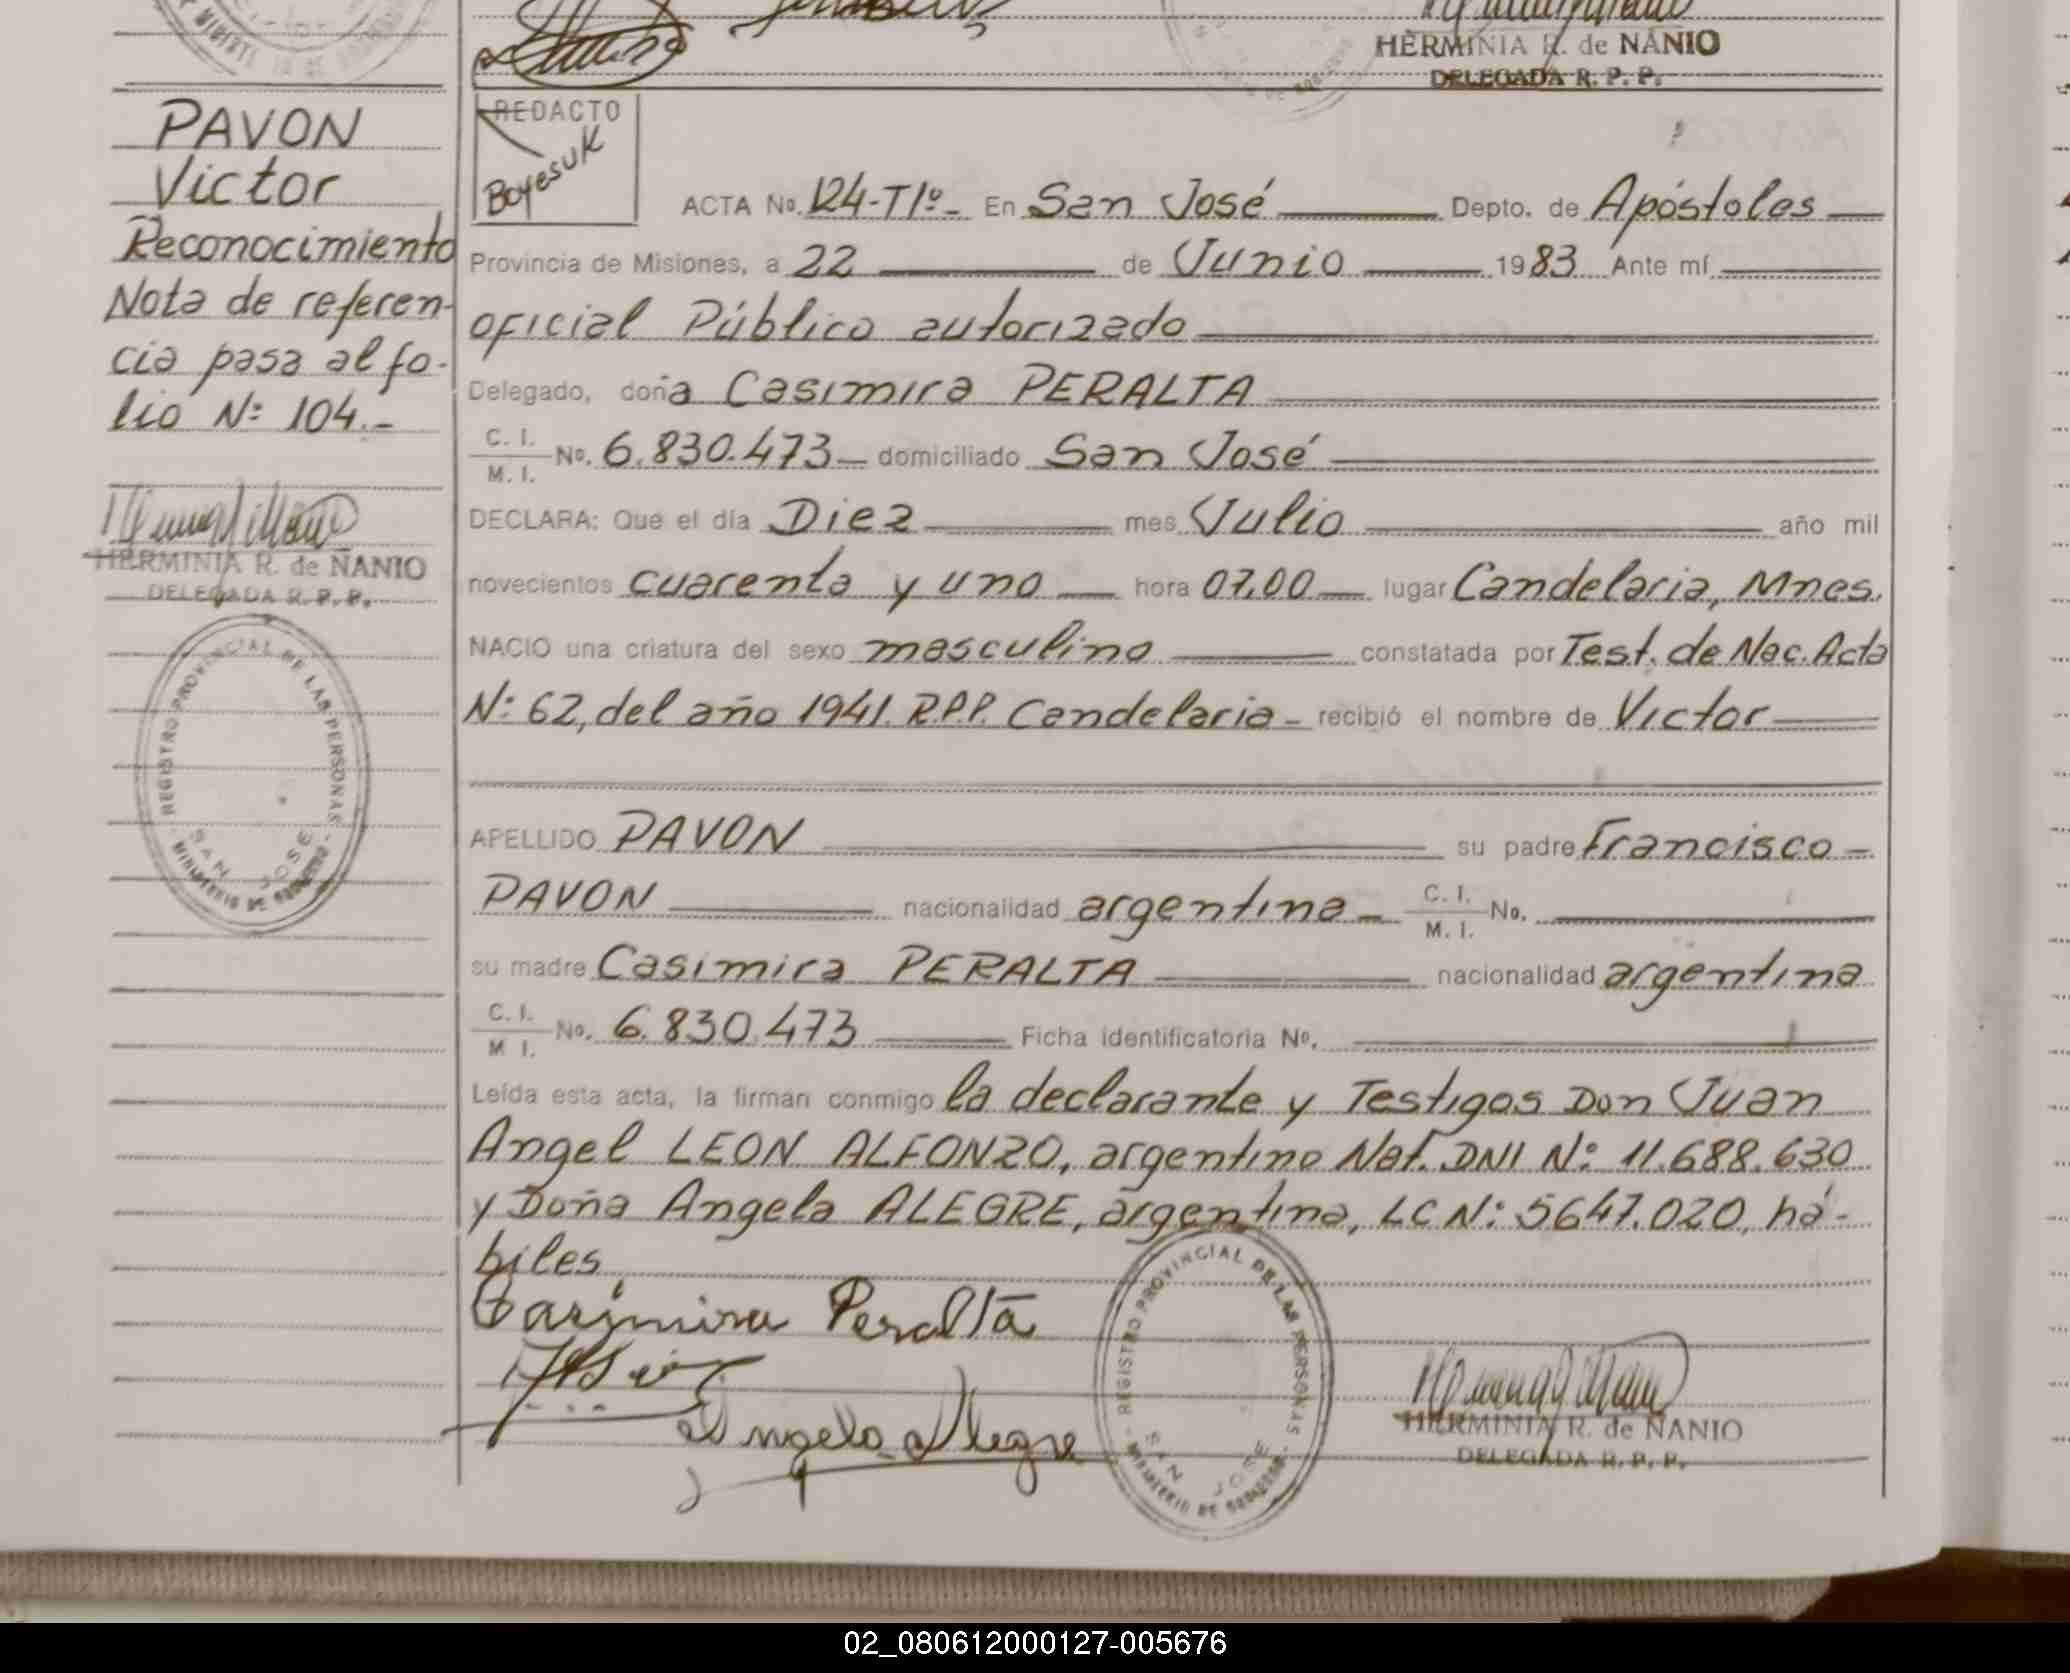 HERMINIA R. de ÑANIO
DELEGADA R. P. P.
PAVON
Victor
Reconocimiento
Nota de referen-
cia pasa al fo-
lio Nº 104.-
HERMINIA R. de ÑANIO
DELEGADA R. P. P.
REGISTRO PROVINCIAL DE LAS PERSONAS
SAN JOSE
MINISTERIO DE GOBIERNO
REDACTO
Boyesuk
ACTA No. 124-T1º- En San José Depto. de Apóstoles
Provincia de Misiones, a 22 de Junio 1983 Ante mí
oficial Público autorizado
Delegado, doña Casimira PERALTA
C. I. / M. I. No. 6.830.473 domiciliado San José
DECLARA: Que el día Diez mes Julio año mil
novecientos cuarenta y uno hora 07,00 lugar Candelaria, Mnes.
NACIO una criatura del sexo masculino constatada por Test. de Nac. Acta
Nº 62, del año 1941. R.P.P. Candelaria- recibió el nombre de Victor
APELLIDO PAVON su padre Francisco
PAVON nacionalidad argentina C. I. / M. I. No.
su madre Casimira PERALTA nacionalidad argentina
C. I. / M I. No. 6.830.473 Ficha identificatoria No.
Leída esta acta, la firman conmigo la declarante y Testigos Don Juan
Angel LEON ALFONZO, argentino Nat. DNI Nº 11.688.630
y Doña Angela ALEGRE, argentina, LC Nº 5647.020, há-
biles
Casimira Peralta
Angela Alegre
REGISTRO PROVINCIAL DE LAS PERSONAS
SAN JOSE
MINISTERIO DE GOBIERNO
HERMINIA R. de ÑANIO
DELEGADA R. P. P.
02_080612000127-005676